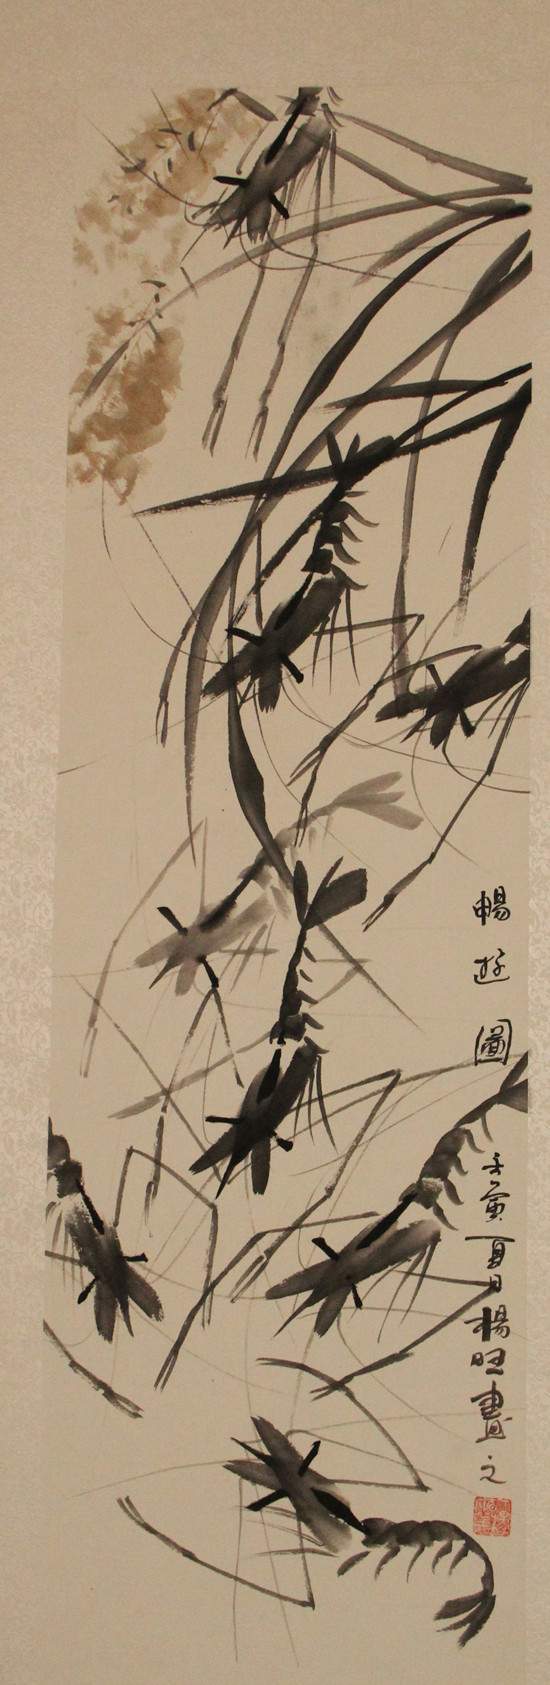 暢遊圖
壬寅夏日楊旺畫之